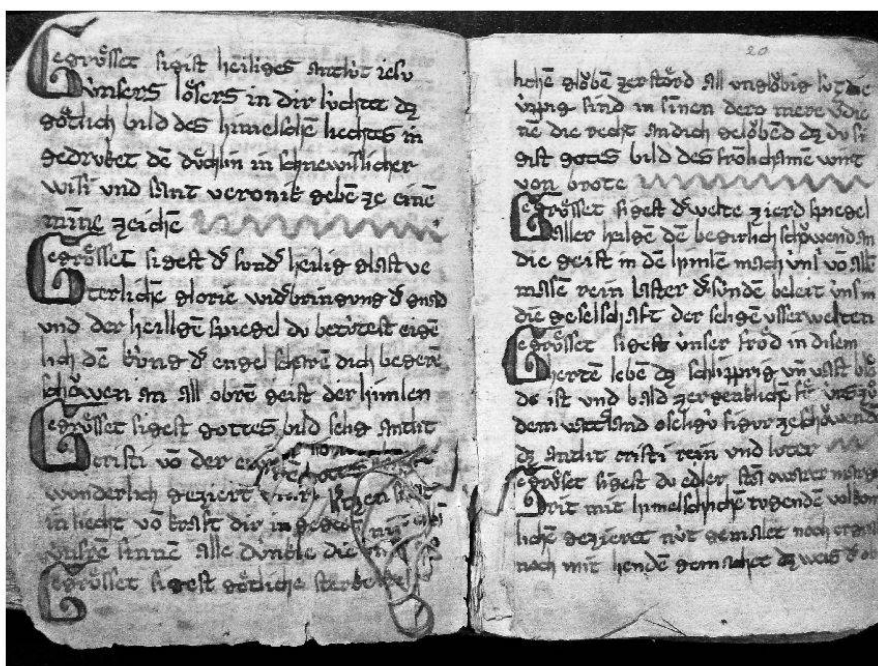 Gegrůsset sigist heiliges antlút iesu
únsers lősers in dir lúchtet dz
gőtlich bild des himelschē liechtes in
gedruket dē důchlin in schnewislicher
wisi und sant veronik gebē ze einē
mīne zeichē
Gegrůsset sigest dˢ sund heilig glast ve
terlichē glorie widˢbringung dˢ gnad
und der heilgē spiegel du betútest eigē
lich dē kúng dˢ engel scharē dich begerē
schőwen an all obrē geist der himlen
Gegrůsset sigest gottes bild selig antlit
cristi vō der
wonderlich geziert
in liecht vō kraft dir in gegeet
únsre sinnē alle dunkle die
Gegrůsset sigest gőtliche
20
lichē glőbē zerstőrd all unglőbig lút die
úppig sind in sinen dero mere die
nē die recht an dich gelőbēd dz du si
gist gotes bild des frőlichamē wirt
von brote
Gegrůsset sigest dˢ welte zierd spiegel
aller heilgē dē begirlich schőwend an
die geist in dē himlen mach úns vō allē
masē rein laster dˢ súnden beleit úns in
die geselschaft der selgē usserwelten
Gegrůsset sigest únser frőd in disem
hertē lebē dz schlipprig uñ vast
do ist und bald zergenklichē
dem vattˢland o selgú figur ze schőwend
dz antlit cristi rein und luter
Gegrůsset sigest du edler
mit himelschlichē tugenden
lichē gezieret nút gemalet noch
noch mit hendē gemachet dz weis dˢ